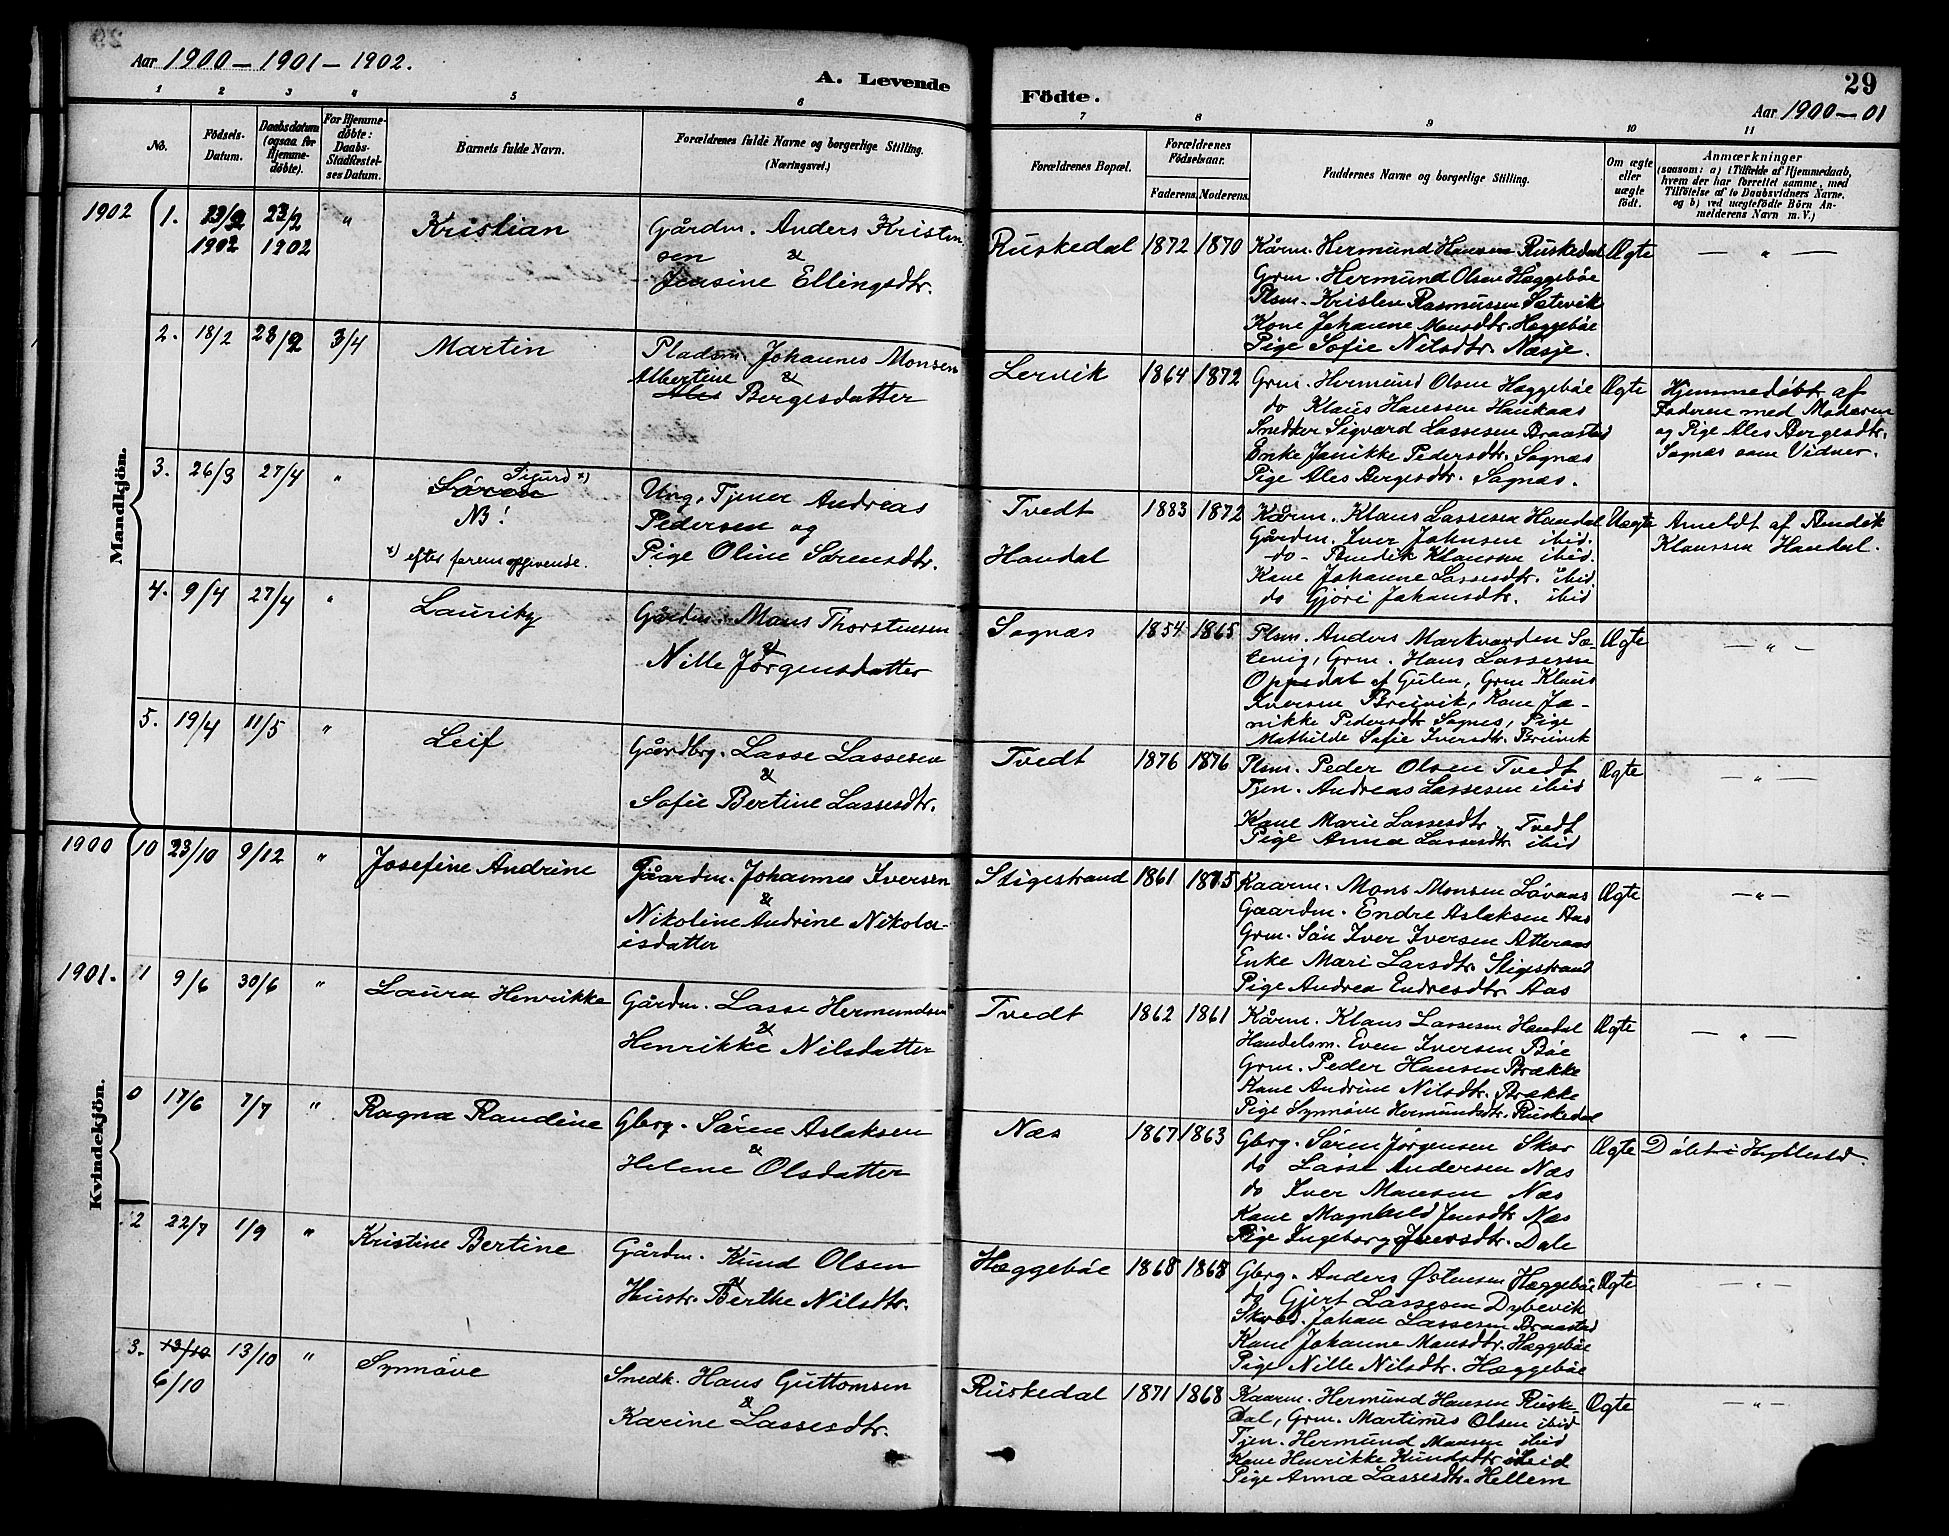 Aar 1900 – 1901 – 1902.
A. Levende Födte.
29
Aar 1900 – 01
1 2 3 4 5 6 7 8 9 10 11
No.
Födsels-
Datum.
Daabsdatum
(ogsaa for
Hjemme-
døbte).
For Hjemme-
døbte:
Daabs-
Stadfæstel-
ses Datum.
Barnets fulde Navn.
Forældrenes fulde Navne og borgerlige Stilling.
(Næringsvei.)
Forældrenes Bopæl.
Forældrenes
Födselsaar.
Faderens. Moderens.
Faddernes Navne og borgerlige Stilling.
Om ægte
eller
uægte
födt.
Anmærkninger
(saasom: a) i Tilfælde af Hjemmedaab,
hvem der har forrettet samme, med
Tilföielse af to Daabsvidners Navne,
og b) ved uægtefödte Börn An-
melderens Navn m. V.)
Mandkjön.
1902
1. 23/2 1902
23/2 1902
"
Kristian
Gårdm. Anders Kristen
sen &
Jensine Ellingsdtr.
Ruskedal
1872 1870
Kårm. Hermund Hansen Ruskedal
Grm. Hermund Olsen Hæggebøe
Plsm. Kristen Rasmussen Satevik
Kone Johanne Monsdtr. Hæggebøe
Pige Sofie Nilsdtr. Næsje.
Ægte
— " —
2. 18/2
23/2
3/4
Martin
Pladsm. Johannes Monsen
Albertine &
Ales Bergesdatter
Lervik
1864 1872
Grm. Hermund Olsen Hæggebøe
do Klaus Hanssen Haukaas
Snedker Sigvard Lassesen Braastad
Enke Janikke Pedersdtr. Sognæs
Pige Ales Bergesdtr. Sognæs.
Ægte
Hjemmedøbt af
Faderen med Moderen
og Pige Ales Bergesdtr.
Sognæs som Vidner.
3. 26/3
27/4
"
Sigurd *)
Søren
NB!
*) efter forenopgivende.
Ung. Tjener Andreas
Pedersen og
Pige Oline Sørensdtr.
Tvedt
Handal
1883 1872
Kårm. Klaus Lassesen Handal
Gårdm. Iver Johnsen ibid.
– do – Bendik Klaussen ibid.
Kone Johanne Lassesdtr. ibid.
do Gjöri Johansdtr. ibid
Uægte
Anmeldt af Bendik
Klaussen Handal.
4. 9/4
27/4
"
Lauritz
Gårdm. Mons Thorstensen
&
Nille Jörgensdatter
Sognæs
1854 1865
Plsm. Anders Markvarden Sæ-
tevig, Grm. Hans Lassesen
Oppedal af Gulen, Grm Klaus
Iversen Breivik, Kone Ja-
nikke Pedersdtr Sognes, Pige
Mathilde Sofie Iversdtr. Breivik
Ægte
— " —
5. 19/4
11/5
"
Leif
Gårdbrg. Lasse Lassesen
&
Sofie Bertine Lassesdtr.
Tvedt
1876 1876
Plsm. Peder Olsen Tvedt
Tjen. Andreas Lassesen ibid
Kone Marie Lassesdtr. Tvedt
Pige Anna Lassesdtr ibid
Ægte
— " —
Kvindekjön.
1900
10 23/10
9/12
"
Josefine Andrine
Gaardm. Johannes Iversen
&
Nikoline Andrine Nikola-
isdatter
Stigestrand
1861 1865
Kaarm. Mons Monsen Løvaas
Gaardm. Endre Aslaksen Aas
Grm. Søn Iver Iversen Atteraas
Enke Mari Larsdtr. Stigestrand
Pige Andrea Endresdtr. Aas
Ægte
— " —
1901.
1 9/6
30/6
"
Laura Henrikke
Gårdm. Lasse Hermundsen
&
Henrikke Nilsdatter
Tvedt
1862 1861
Kårm. Klaus Lassesen Handal
Handelsm. Even Iversen Bøe
Grm. Peder Hansen Brække
Kone Andrine Nilsdtr. Brække
Pige Synnøve Hermundsdtr. Ruskedal
Ægte
— " —
0 17/6
7/7
"
Ragna Randine
Gbrg. Søren Aslaksen
&
Helene Olsdatter
Næs
1867 1863
Gbrg. Søren Jørgensen Skor
do Lasse Andersen Næs
do Iver Monsen Næs
Kone Magnhild Jensdtr Næs
Pige Ingeborg Iversdtr. Dale
Ægte
Døbt i Hyllestad.
2 22/7
1/9
"
Kristine Bertine
Gårdm. Knud Olsen
&
Hustr. Berthe Nilsdtr.
Hæggebøe
1868 1868
Gbrg. Anders Østensen Hæggebøe
do Gjert Lassesen Dybevik
Skråd. Johan Lassesen Braastad
Kone Johanne Monsdtr. Hæggebøe
Pige Nille Nilsdtr. Hæggebøe
Ægte
— " —
3. 13/10
6/10
13/10
"
Synnøve
Snedk. Hans Guttomsen
&
Karine Lassesdtr.
Ruskedal
1871 1868
Kaarm. Hermund Hansen Ruske-
dal, Grm. Martinus Olsen ibid
Tjen. Hermund Monsen ibid
Kone Henrikke Knudsdtr ibid
Pige Anna Lassesdtr. Hellem
Ægte
— " —